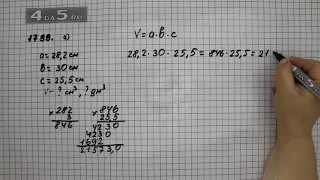 4DA5.RU
1799. а)
V = a · b · c
a = 28,2 см
b = 30 см
c = 25,5 см
V – ? см³, ? дм³
28,2 · 30 · 25,5 = 846 · 25,5 = 21
× 282
3
846
× 846
255
4230
4230
1692
21573,0